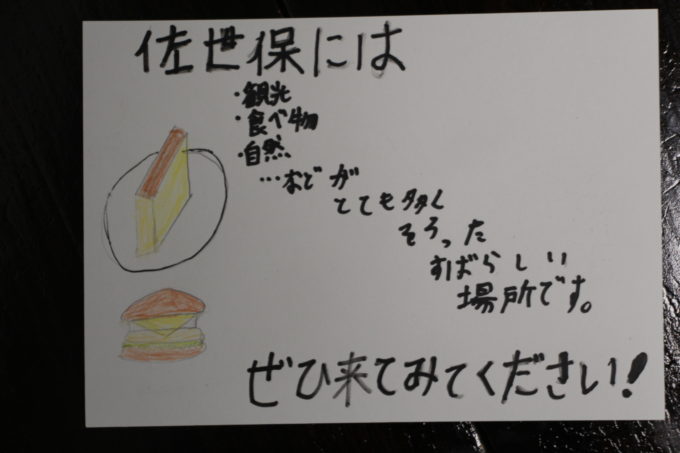 佐世保には
・観光
・食べ物
・自然
…などが
とても多く
そろった
すばらしい
場所です。
ぜひ来てみてください!